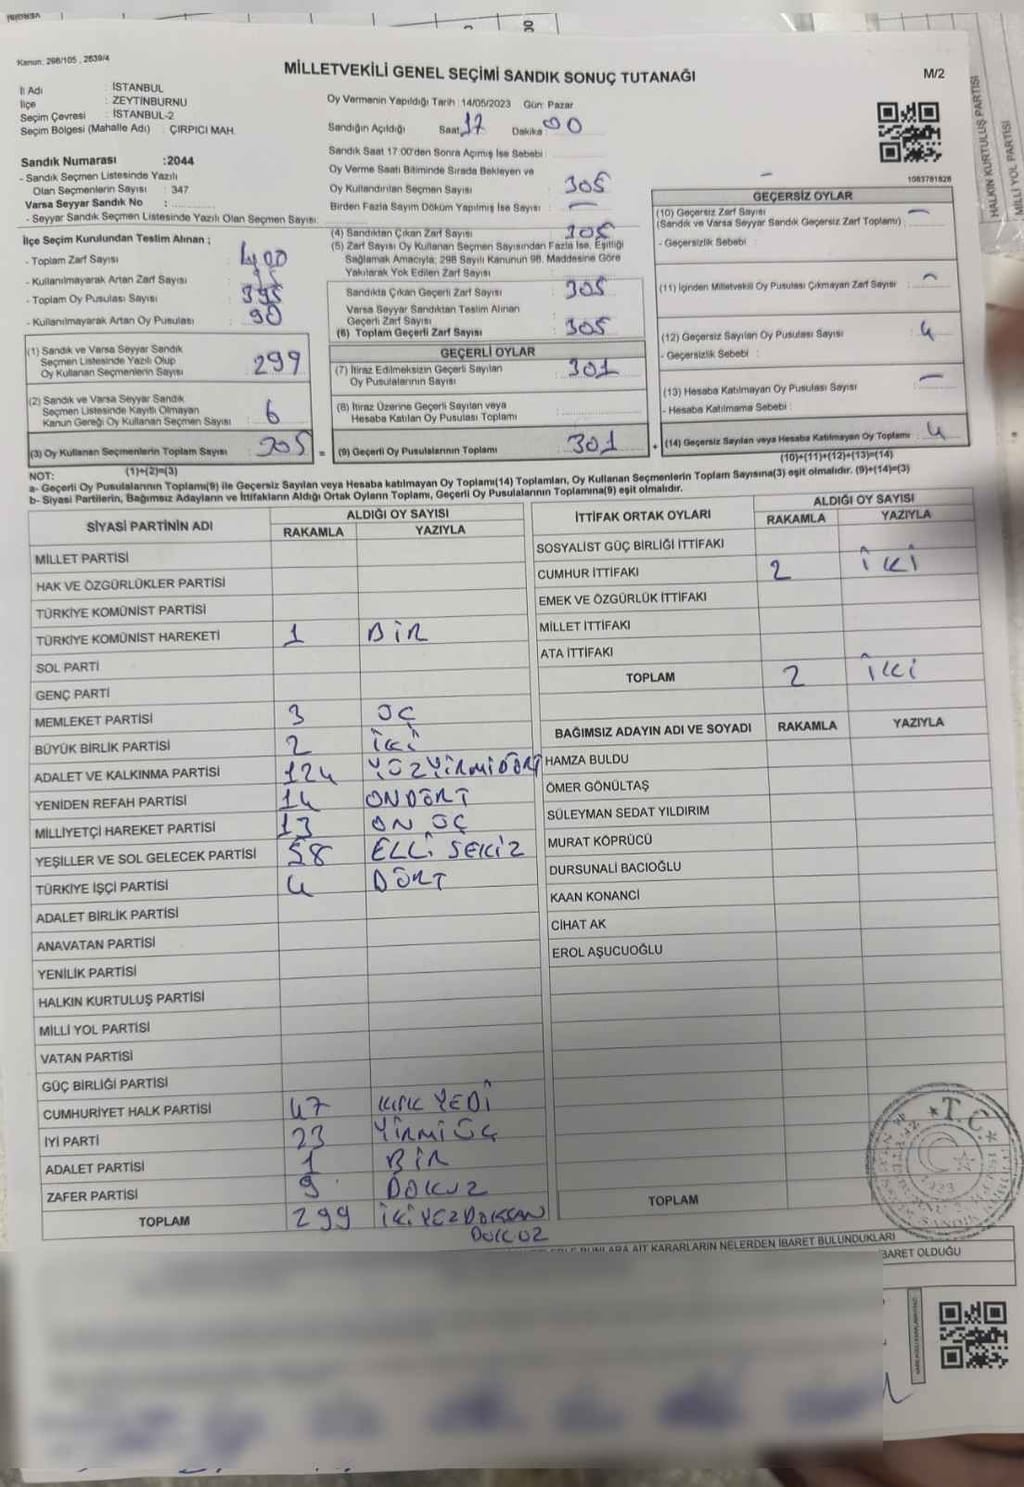 Kanun: 298/105 , 2839/4
MİLLETVEKİLİ GENEL SEÇİMİ SANDIK SONUÇ TUTANAĞI
M/2
İl Adı : İSTANBUL
İlçe : ZEYTİNBURNU
Seçim Çevresi : İSTANBUL-2
Seçim Bölgesi (Mahalle Adı) : ÇIRPICI MAH.
Oy Vermenin Yapıldığı Tarih :14/05/2023 Gün: Pazar
Sandığın Açıldığı Saat 17 Dakika 00
Sandık Saat 17:00'den Sonra Açımış İse Sebebi :
Oy Verme Saati Bitiminde Sırada Bekleyen ve
Oy Kullandırılan Seçmen Sayısı : 305
Birden Fazla Sayım Döküm Yapılmış İse Sayısı : —
1083781828
HALKIN KURTULUŞ PARTİSİ
MİLLİ YOL PARTİSİ
Sandık Numarası :2044
- Sandık Seçmen Listesinde Yazılı
Olan Seçmenlerin Sayısı : 347
Varsa Seyyar Sandık No :
- Seyyar Sandık Seçmen Listesinde Yazılı Olan Seçmen Sayısı:
İlçe Seçim Kurulundan Teslim Alınan ;
- Toplam Zarf Sayısı : 400
- Kullanılmayarak Artan Zarf Sayısı : 95
- Toplam Oy Pusulası Sayısı : 395
- Kullanılmayarak Artan Oy Pusulası : 90
(1) Sandık ve Varsa Seyyar Sandık
Seçmen Listesinde Yazılı Olup
Oy Kullanan Seçmenlerin Sayısı : 299
(2) Sandık ve Varsa Seyyar Sandık
Seçmen Listesinde Kayıtlı Olmayan
Kanun Gereği Oy Kullanan Seçmen Sayısı : 6
(3) Oy Kullanan Seçmenlerin Toplam Sayısı : 305 =
(1)+(2)=(3)
(4) Sandıktan Çıkan Zarf Sayısı : 305
(5) Zarf Sayısı Oy Kullanan Seçmen Sayısından Fazla İse, Eşitliği
Sağlamak Amacıyla; 298 Sayılı Kanunun 98. Maddesine Göre
Yakılarak Yok Edilen Zarf Sayısı :
Sandıkta Çıkan Geçerli Zarf Sayısı : 305
Varsa Seyyar Sandıktan Teslim Alınan
Geçerli Zarf Sayısı :
(6) Toplam Geçerli Zarf Sayısı : 305
GEÇERLİ OYLAR
(7) İtiraz Edilmeksizin Geçerli Sayılan
Oy Pusulalarının Sayısı : 301
(8) İtiraz Üzerine Geçerli Sayılan veya
Hesaba Katılan Oy Pusulası Toplamı :
(9) Geçerli Oy Pusulalarının Toplamı : 301 +
GEÇERSİZ OYLAR
(10) Geçersiz Zarf Sayısı : —
(Sandık ve Varsa Seyyar Sandık Geçersiz Zarf Toplamı)
- Geçersizlik Sebebi :
(11) İçinden Milletvekili Oy Pusulası Çıkmayan Zarf Sayısı : —
(12) Geçersiz Sayılan Oy Pusulası Sayısı : 4
- Geçersizlik Sebebi :
(13) Hesaba Katılmayan Oy Pusulası Sayısı : —
- Hesaba Katılmama Sebebi :
(14) Geçersiz Sayılan veya Hesaba Katılmayan Oy Toplamı : 4
(10)+(11)+(12)+(13)=(14)
NOT:
a- Geçerli Oy Pusulalarının Toplamı(9) ile Geçersiz Sayılan veya Hesaba katılmayan Oy Toplamı(14) Toplamları, Oy Kullanan Seçmenlerin Toplam Sayısına(3) eşit olmalıdır. (9)+(14)=(3)
b- Siyasi Partilerin, Bağımsız Adayların ve İttifakların Aldığı Ortak Oyların Toplamı, Geçerli Oy Pusulalarının Toplamına(9) eşit olmalıdır.
SİYASİ PARTİNİN ADI ALDIĞI OY SAYISI
RAKAMLA YAZIYLA
MİLLET PARTİSİ
HAK VE ÖZGÜRLÜKLER PARTİSİ
TÜRKİYE KOMÜNİST PARTİSİ
TÜRKİYE KOMÜNİST HAREKETİ 1 BİR
SOL PARTİ
GENÇ PARTİ
MEMLEKET PARTİSİ 3 ÜÇ
BÜYÜK BİRLİK PARTİSİ 2 İKİ
ADALET VE KALKINMA PARTİSİ 124 YÜZYİRMİDÖRT
YENİDEN REFAH PARTİSİ 14 ONDÖRT
MİLLİYETÇİ HAREKET PARTİSİ 13 ON ÜÇ
YEŞİLLER VE SOL GELECEK PARTİSİ 58 ELLİ SEKİZ
TÜRKİYE İŞÇİ PARTİSİ 4 DÖRT
ADALET BİRLİK PARTİSİ
ANAVATAN PARTİSİ
YENİLİK PARTİSİ
HALKIN KURTULUŞ PARTİSİ
MİLLİ YOL PARTİSİ
VATAN PARTİSİ
GÜÇ BİRLİĞİ PARTİSİ
CUMHURİYET HALK PARTİSİ 47 KIRK YEDİ
İYİ PARTİ 23 YİRMİ ÜÇ
ADALET PARTİSİ 1 BİR
ZAFER PARTİSİ 9 DOKUZ
TOPLAM 299 İKİ YÜZ DOKSAN
DOKUZ
İTTİFAK ORTAK OYLARI ALDIĞI OY SAYISI
RAKAMLA YAZIYLA
SOSYALİST GÜÇ BİRLİĞİ İTTİFAKI
CUMHUR İTTİFAKI 2 İKİ
EMEK VE ÖZGÜRLÜK İTTİFAKI
MİLLET İTTİFAKI
ATA İTTİFAKI
TOPLAM 2 İKİ
BAĞIMSIZ ADAYIN ADI VE SOYADI RAKAMLA YAZIYLA
HAMZA BULDU
ÖMER GÖNÜLTAŞ
SÜLEYMAN SEDAT YILDIRIM
MURAT KÖPRÜCÜ
DURSUNALİ BACIOĞLU
KAAN KONANCİ
CİHAT AK
EROL AŞUCUOĞLU
TOPLAM
T.C.
BUNLARA AİT KARARLARIN NELERDEN İBARET BULUNDUKLARI
İBARET OLDUĞU